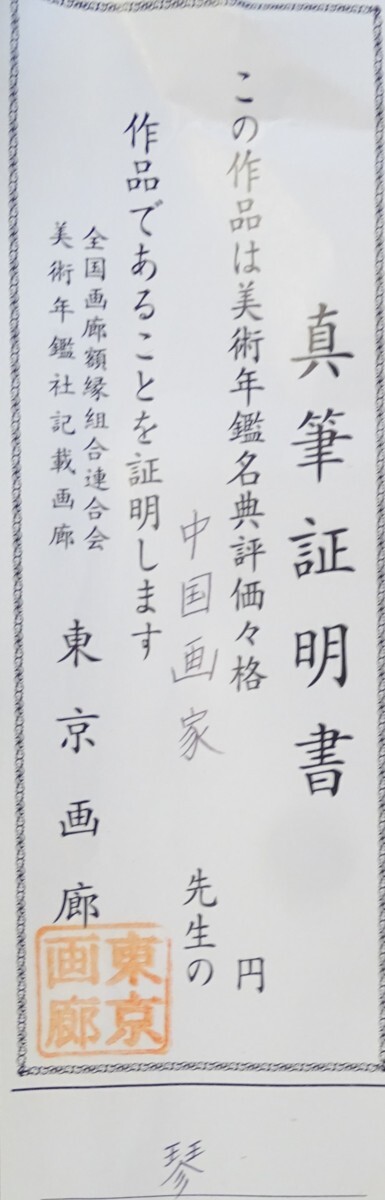 真筆証明書
この作品は美術年鑑名典評価々格 円
中国画家 先生の
作品であることを証明します
全国画廊額縁組合連合会
美術年鑑社記載画廊
東京画廊
東京画廊